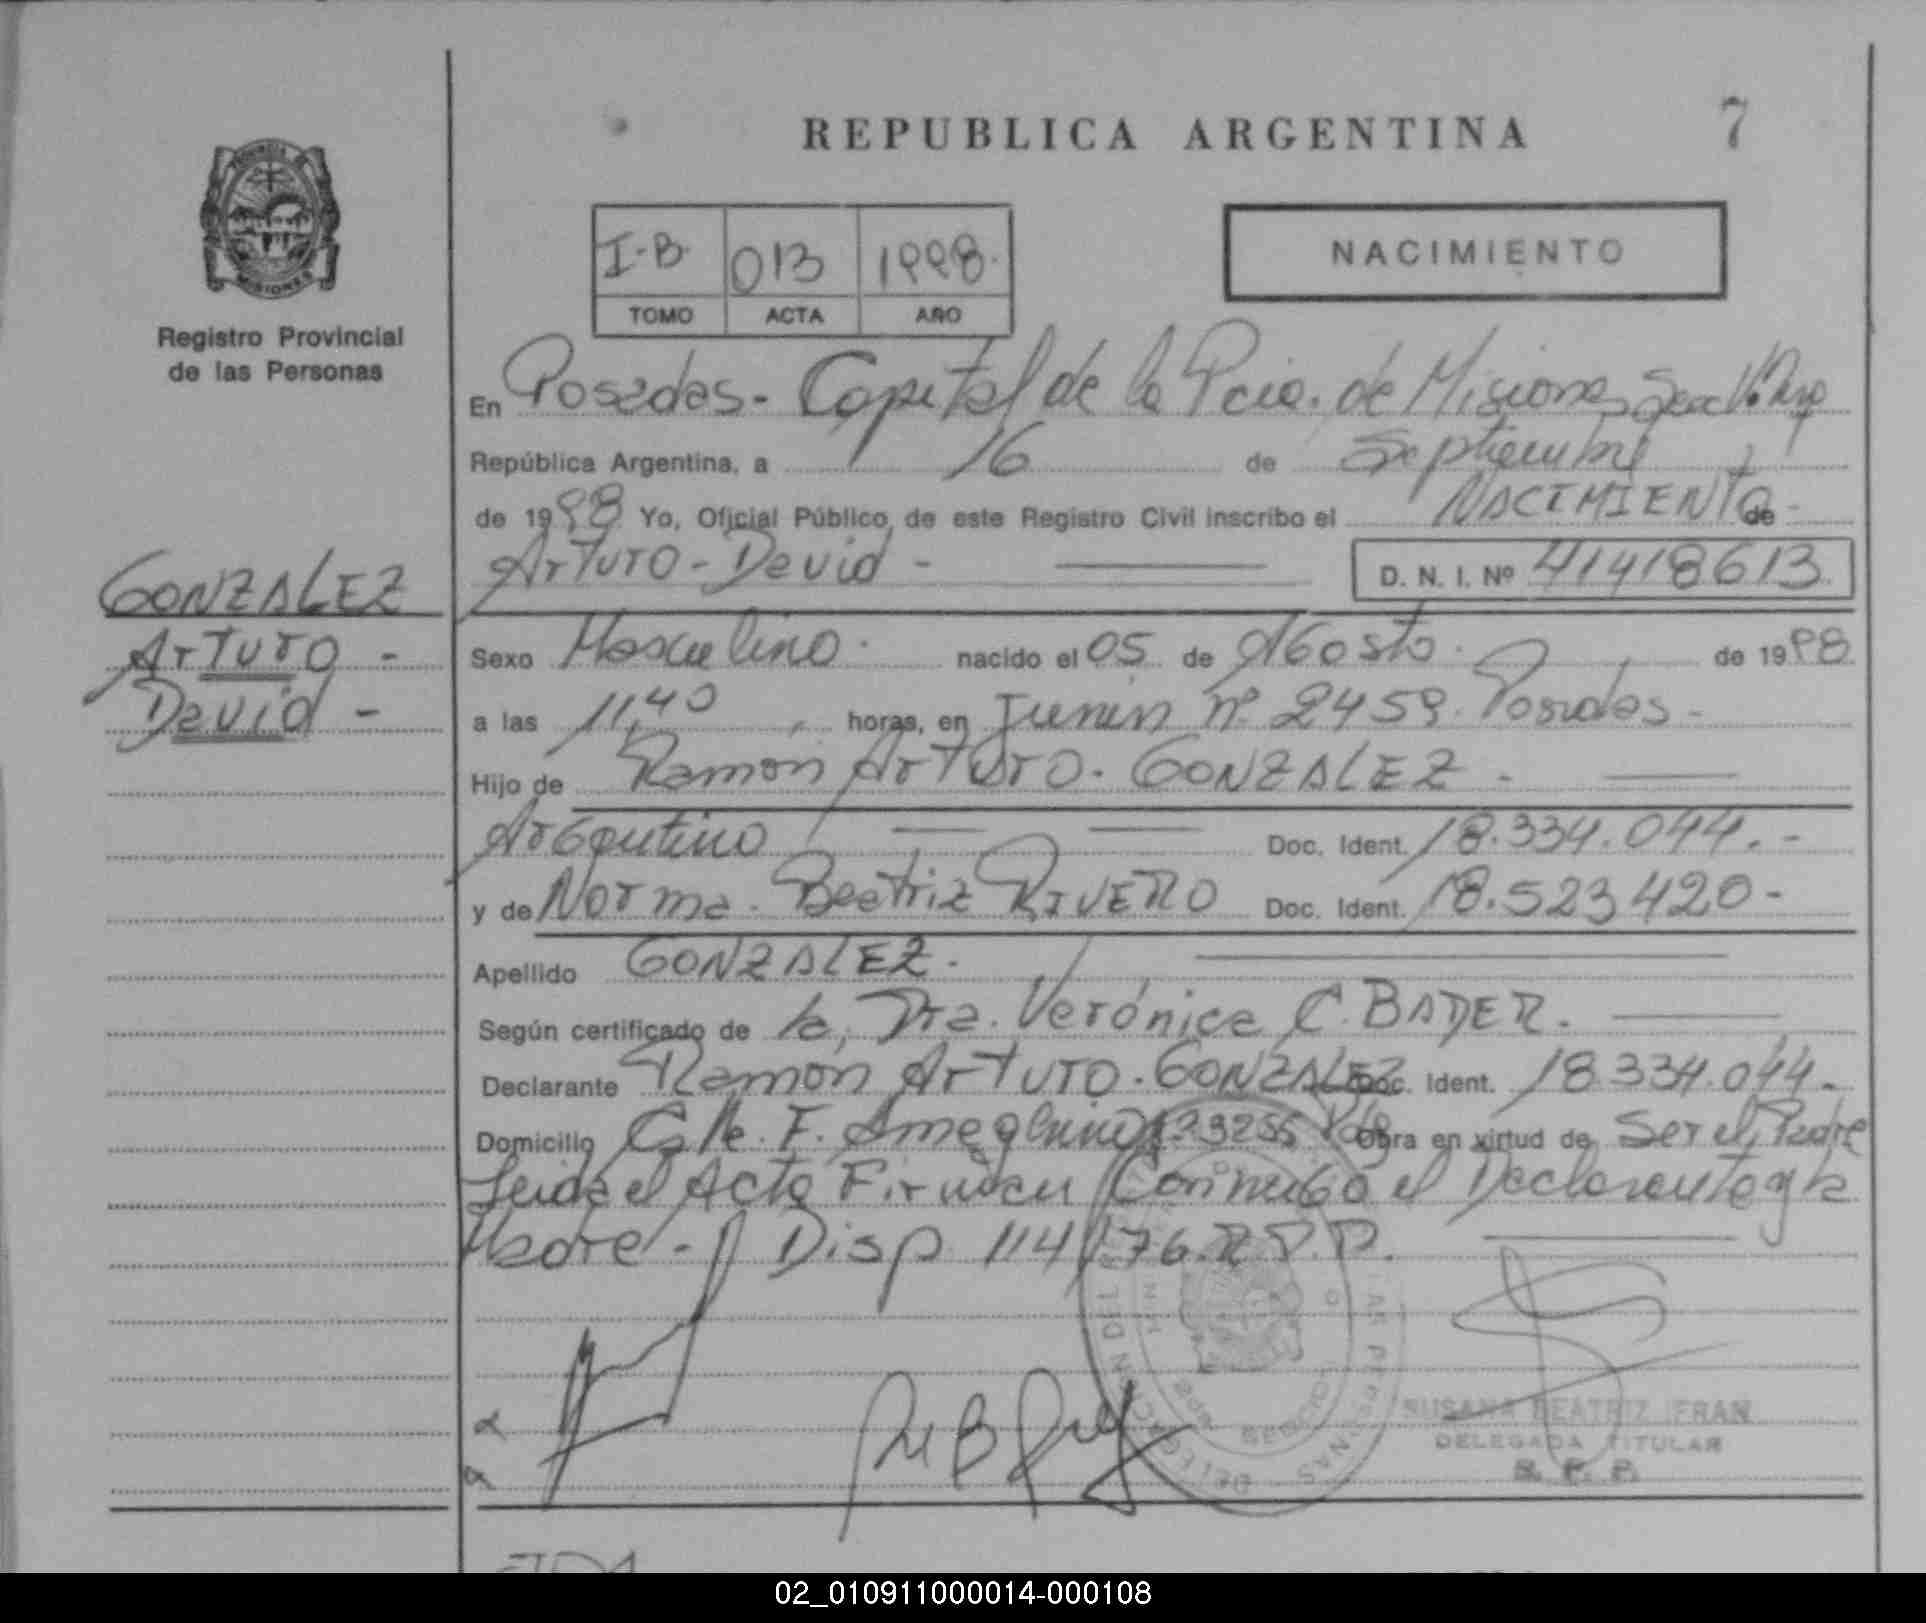 REPUBLICA ARGENTINA
7
PROVINCIA DE
MISIONES
Registro Provincial
de las Personas
I-B 013 1998.
TOMO ACTA AÑO
NACIMIENTO
En Posadas - Capital de la Pcia. de Misiones
República Argentina, a 16 de Septiembre
de 1998 Yo, Oficial Público de este Registro Civil inscribo el NACIMIENTO de
Arturo - David -
D. N. I. Nº 41418613
GONZALEZ
Arturo -
David -
Sexo Masculino. nacido el 05 de Agosto. de 1998
a las 11,40 horas, en Junin nº 2459. Posadas -
Hijo de Ramón Arturo. GONZALEZ -
Argentino Doc. Ident. 18.334.044. -
y de Norma. Beatriz RIVERO Doc. Ident. 18.523420 -
Apellido GONZALEZ.
Según certificado de la, Dra. Verónica C. BADER.
Declarante Ramón Arturo. GONZALEZ Doc. Ident. 18.334.044.
Domicilio Calle. F. Ameghino 3255 Obra en virtud de Ser el Padre
Leida el Acta Firman Conmigo el Declarante y la
Madre. - Disp 114/76.R.P.P.
SUSANA BEATRIZ IFRAN
DELEGADA TITULAR
R. P. P.
02_010911000014-000108